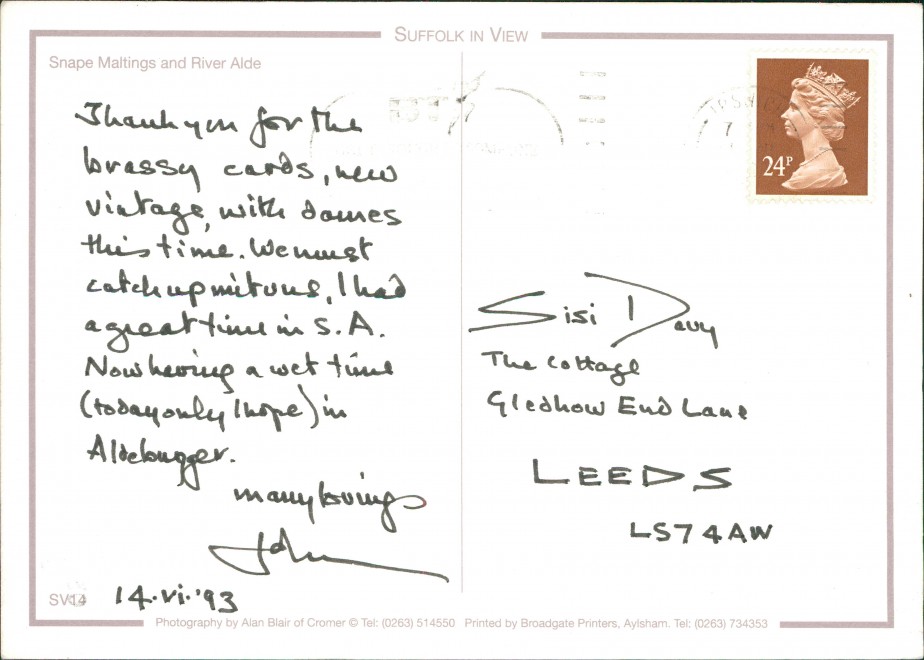 SUFFOLK IN VIEW
Snape Maltings and River Alde
Thank you for the
brassy cards, new
vintage, with dames
this time. We must
catch up mit uns, I had
a great time in S.A.
Now having a wet time
(today only I hope) in
Aldebugger.
many lovings
John
14.vi.'93
24P
Sisi Davy
The Cottage
Gledhow End Lane
LEEDS
LS7 4AW
SV14
Photography by Alan Blair of Cromer © Tel: (0263) 514550 Printed by Broadgate Printers, Aylsham. Tel: (0263) 734353